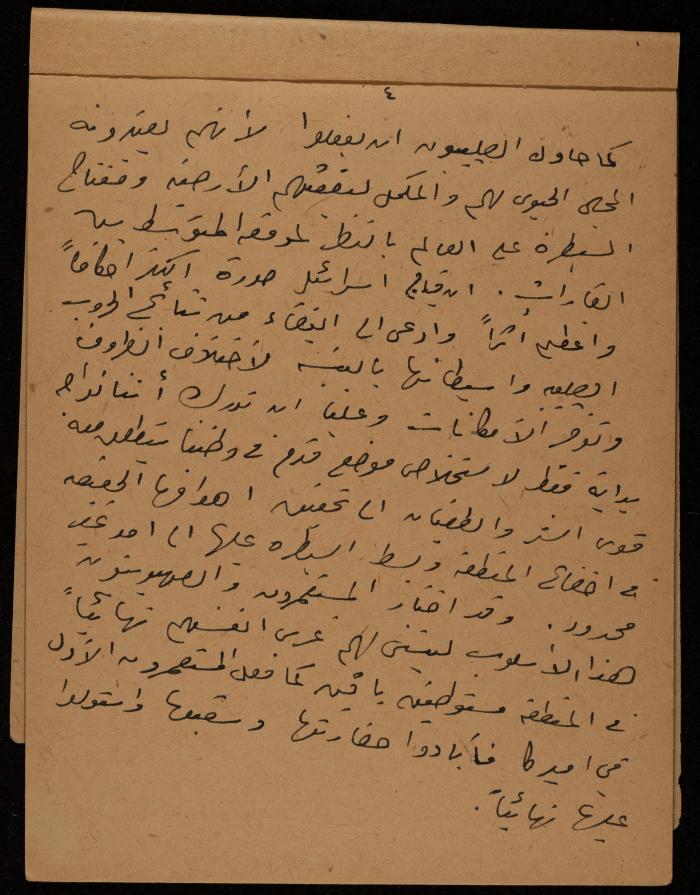 ٤
كما حاول الصليبيون ان يفعلوا لأنهم يعتبرونه
المجال الحيوي لهم والمكمل لنفقتهم الأرضية ومفتاح
السيطرة على العالم بالنظر لموقعه المتوسط بين
القارات. ان قيام اسرائيل صورة اكثر احكاماً
واعظم أثراً وادعى الى البقاء من نتائج الحروب
الصليبية واسبطانها بالنسبة لأختلاف الظروف
وتوفر الأمكانات وعلينا ان ندرك أنها
بداية فقط لاستخلاص موضع قدم في وطننا ينطلق منه
قوى الشر والطغيان الى تحقيق اهدافها الحقيقية
في اخضاع المنطقة وبسط السيطرة عليها الى امد غير
محدود. وقد اختار المستعمرون والصهيونيون
هذا الأسلوب ليتسنى لهم غرس انفسهم نهائياً
في المنطقة مستوطنين باقين كما فعل المستعمرون الأول
في اميركا فأبادوا حضارتها وشعبها واستولوا
عليها نهائياً.